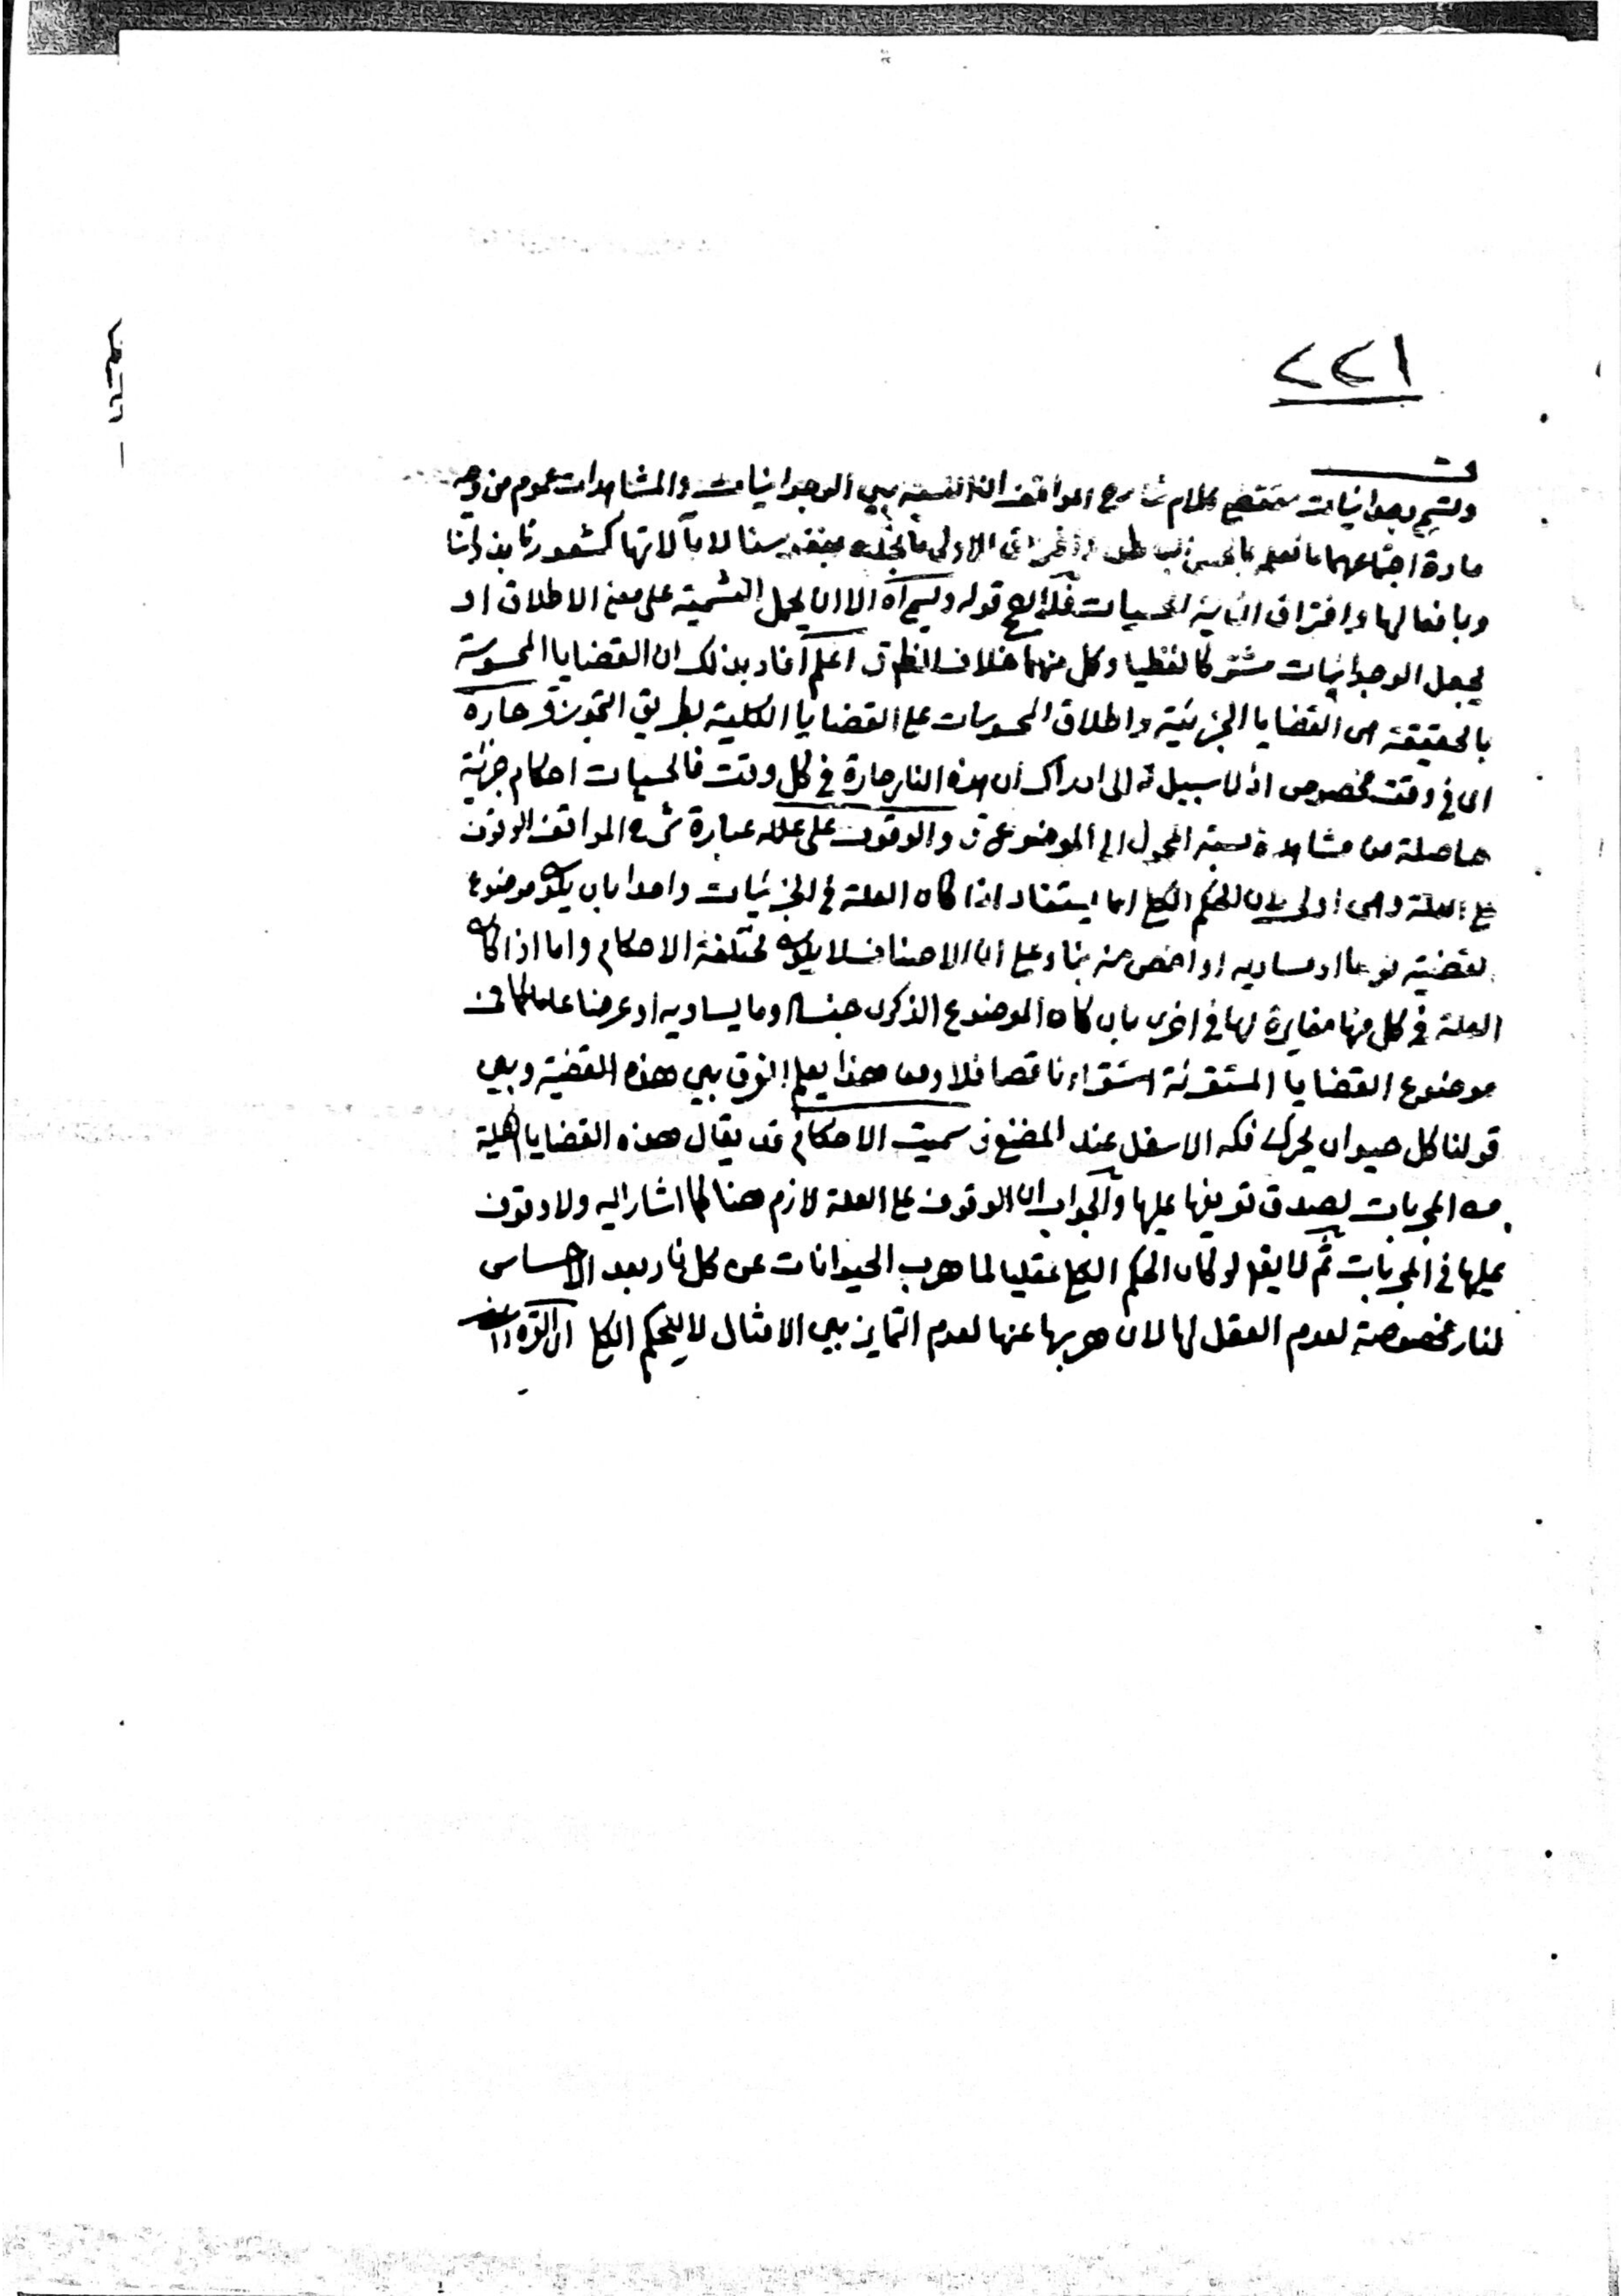 ٢٢١
ق
وتسمى وجدانيات مقتضى كلام شارح المواقف ان النسبة بين الوجدانيات والمشاهدات عموم من وجه
مادة اجتماعهما ما نعلم بالحس الباطن وافتراق الاولى ما نجده بنفوسنا لا بآلاتها كشعورنا بذواتنا
وبافعالها وافتراق الثانية الحسيات فلا يصح قوله وتسمى آه الا ان يحمل التسمية على معنى الاطلاق او
يجعل الوجدانيات مشتركا لفظيا وكل منهما خلاف الظ م ق اعلم افاد بذلك ان القضايا المحسوسة
بالحقيقة هى القضايا الجزئية واطلاق المحسوسات على القضايا الكلية بطريق التجوز ق حارة
اى فى وقت مخصوص اذ لا سبيل له الى ادراك ان هذه النار حارة فى كل وقت فالحسيات احكام جزئية
حاصلة من مشاهدة نسبة المحمول الى الموضوع ق والوقوف على علله عبارة شرح المواقف الوقوف
على العلة وهى اولى لان الحكم الكلى انما يستفاد اذا كان العلة فى الجزئيات واحدا بان يكون موضوع
القضية نوعا او مساويه او اخص منه بناء على ان الاصناف لا يكون مختلفة الاحكام واما اذا كان
العلة فى كل منها مغايرة لها فى اخرى بان كان الموضوع الذكرى جنسا وما يساويه او عرضا عاما كما فى
موضوع القضايا المستقرئة استقراء ناقصا فلا ومن هذا يعلم الفرق بين هذه القضية وبين
قولنا كل حيوان يحرك فكه الاسفل عند المضغ ق سميت الاحكام قد يقال هذه القضايا
من المجربات لصدق تعريفها عليها والجواب ان الوقوف على العلة لازم هنا كما اشار اليه ولا وقوف
عليها فى المجربات ثم لا يقال لو كان الحكم الكلى عقليا لما هرب الحيوانات عن كل نار بعد الاحساس
لنار مخصوصة لعدم العقل لها لان هربها عنها لعدم التمايز بين الامثال لا للحكم الكلى